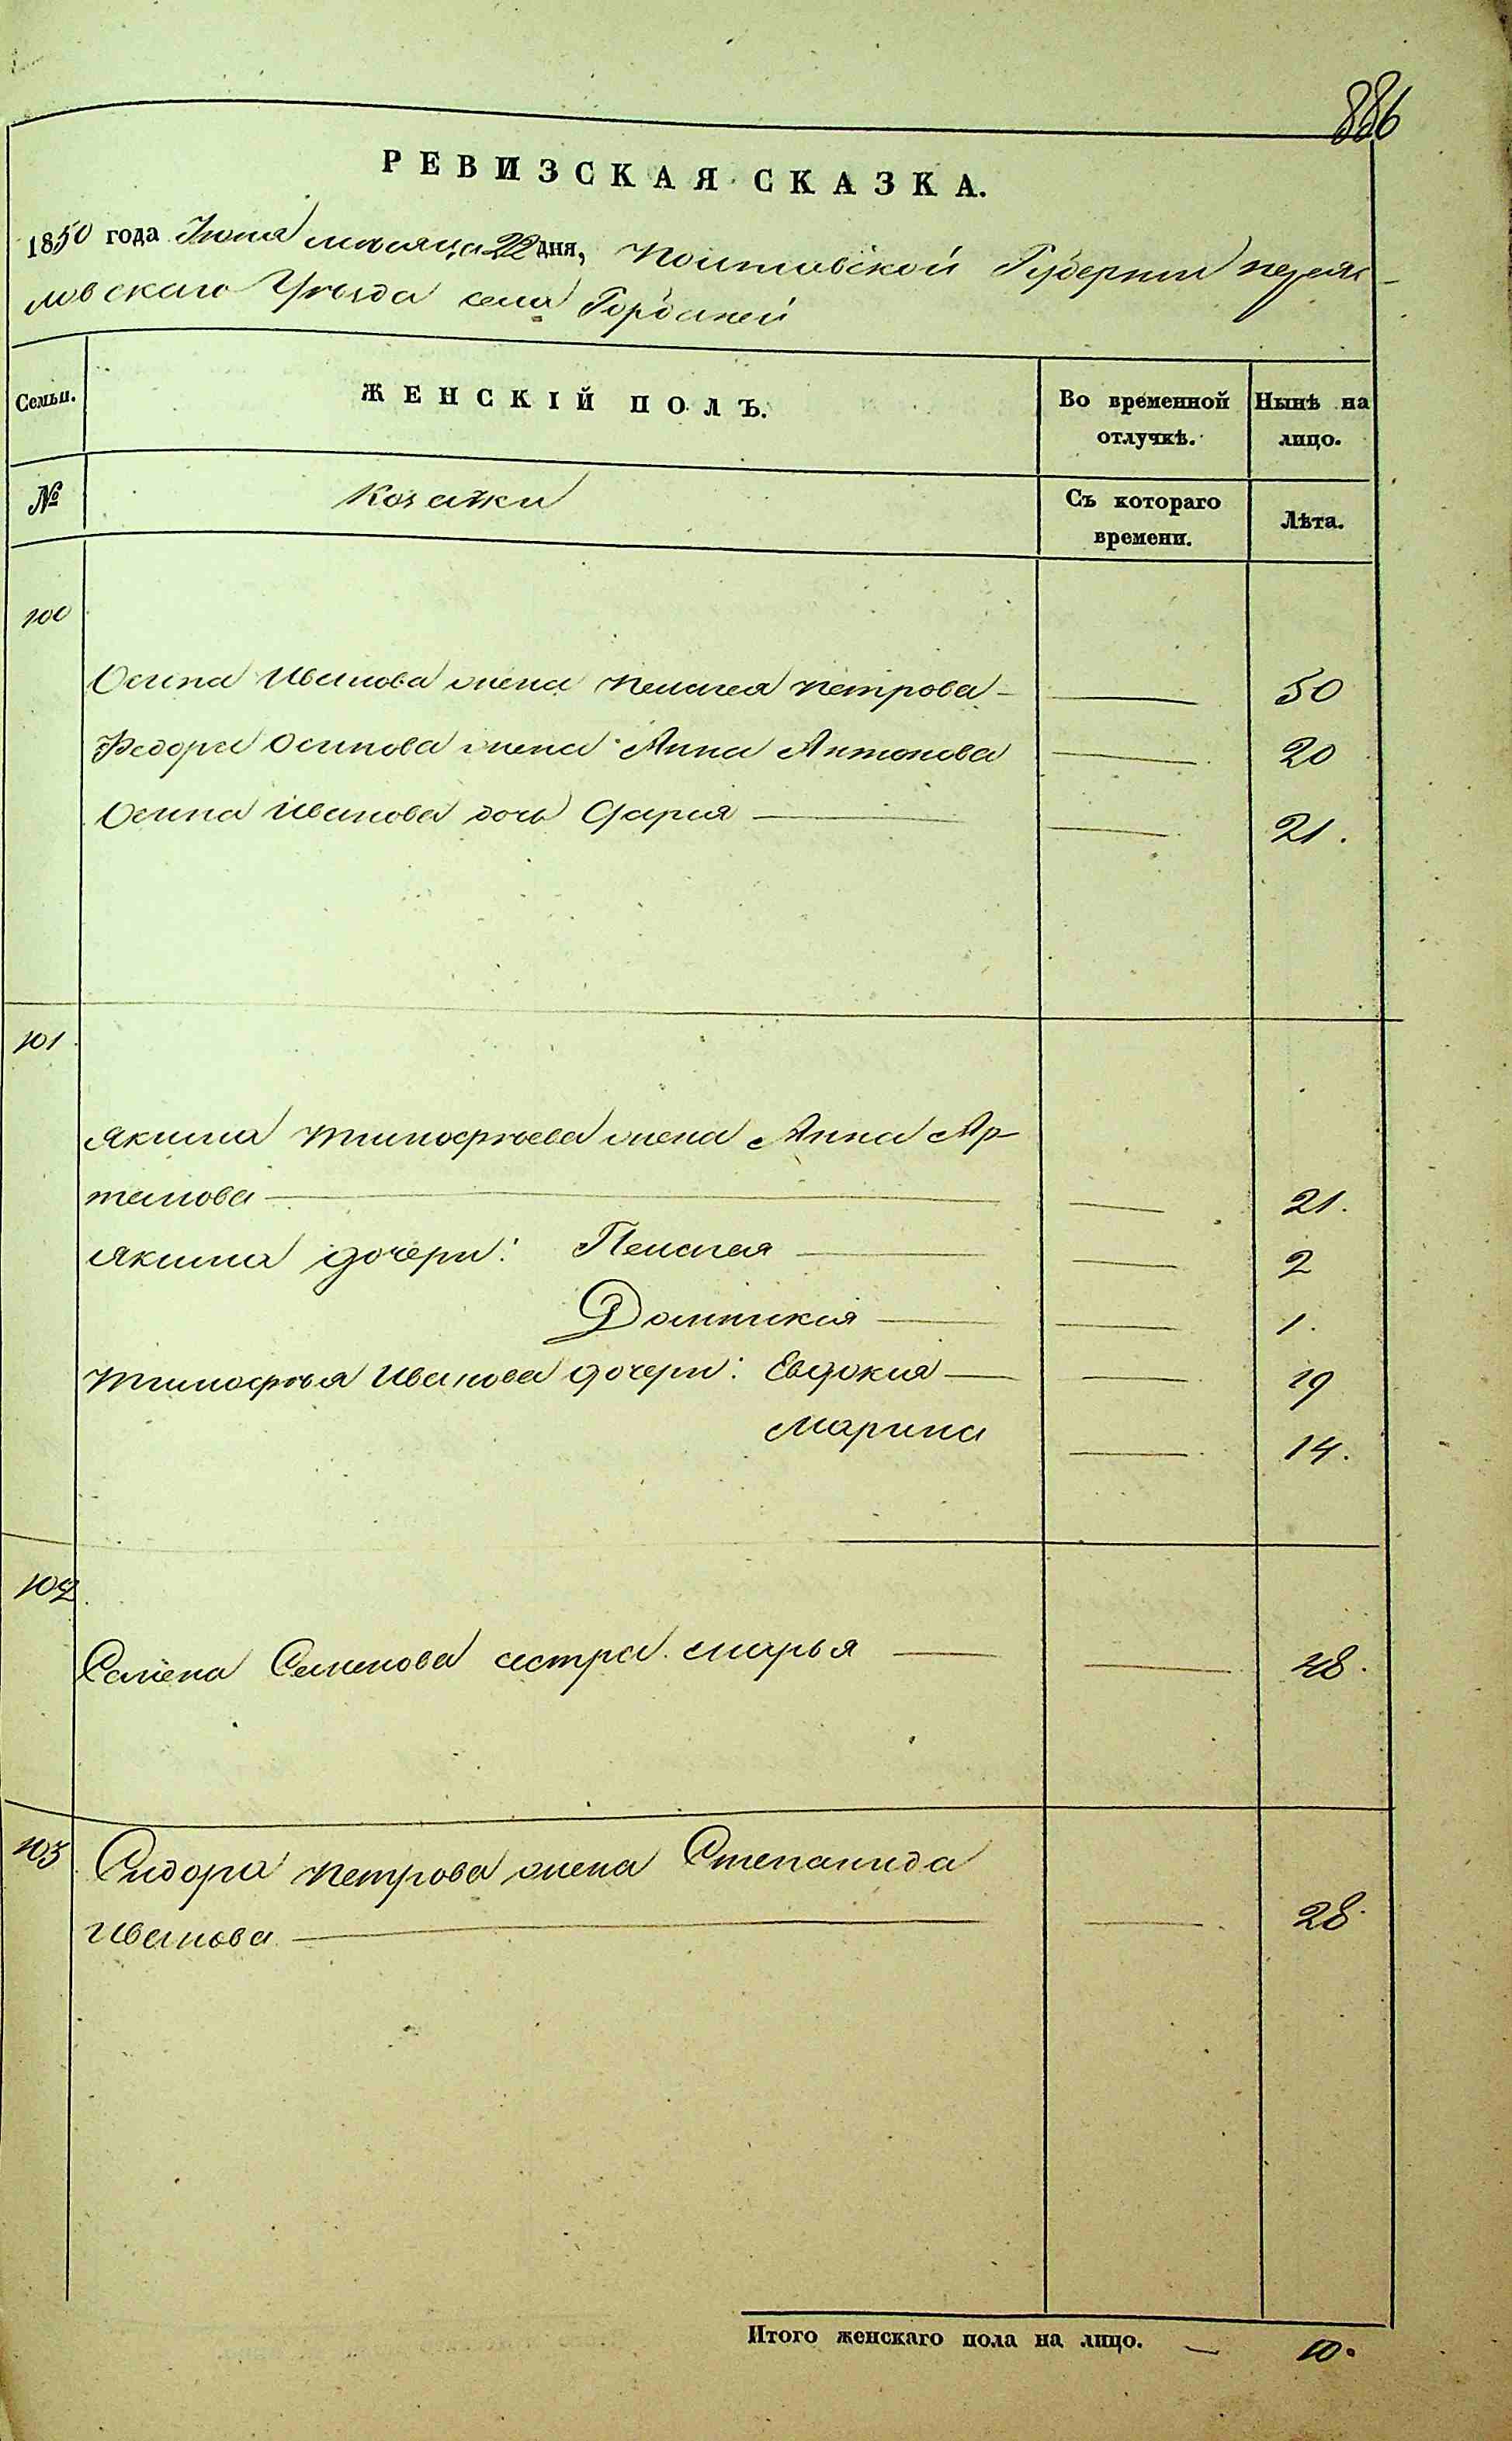 886
РЕВИЗСКАЯ СКАЗКА.
1850 года Июня месяца 22 дня, Полтавской Губернии Переяс-
ловскаго Уѣзда села
Семьи.
ЖЕНСКІЙ ПОЛЪ.
Во временной отлучкѣ.
Нынѣ на лицо.
№
Козачки
Съ котораго времени.
Лѣта.
100
Осипа Иванова жена Пелагея Петрова — 50
Федора Осипова жена Анна Антонова — 20
Осипа Иванова дочь Дария — 21.
101
Якима Тимофѣева жена Анна Ар-
темова — 21.
Якима дочери: Пелагея — 2
Домникия — 1.
Тимофѣя Иванова дочери: Евдокия — 19
Марина — 14.
102
Семена Семенова сестра Марья — 48.
103
Сидора Петрова жена Степанида
Иванова — 28.
Итого женскаго пола на лицо. — 10.